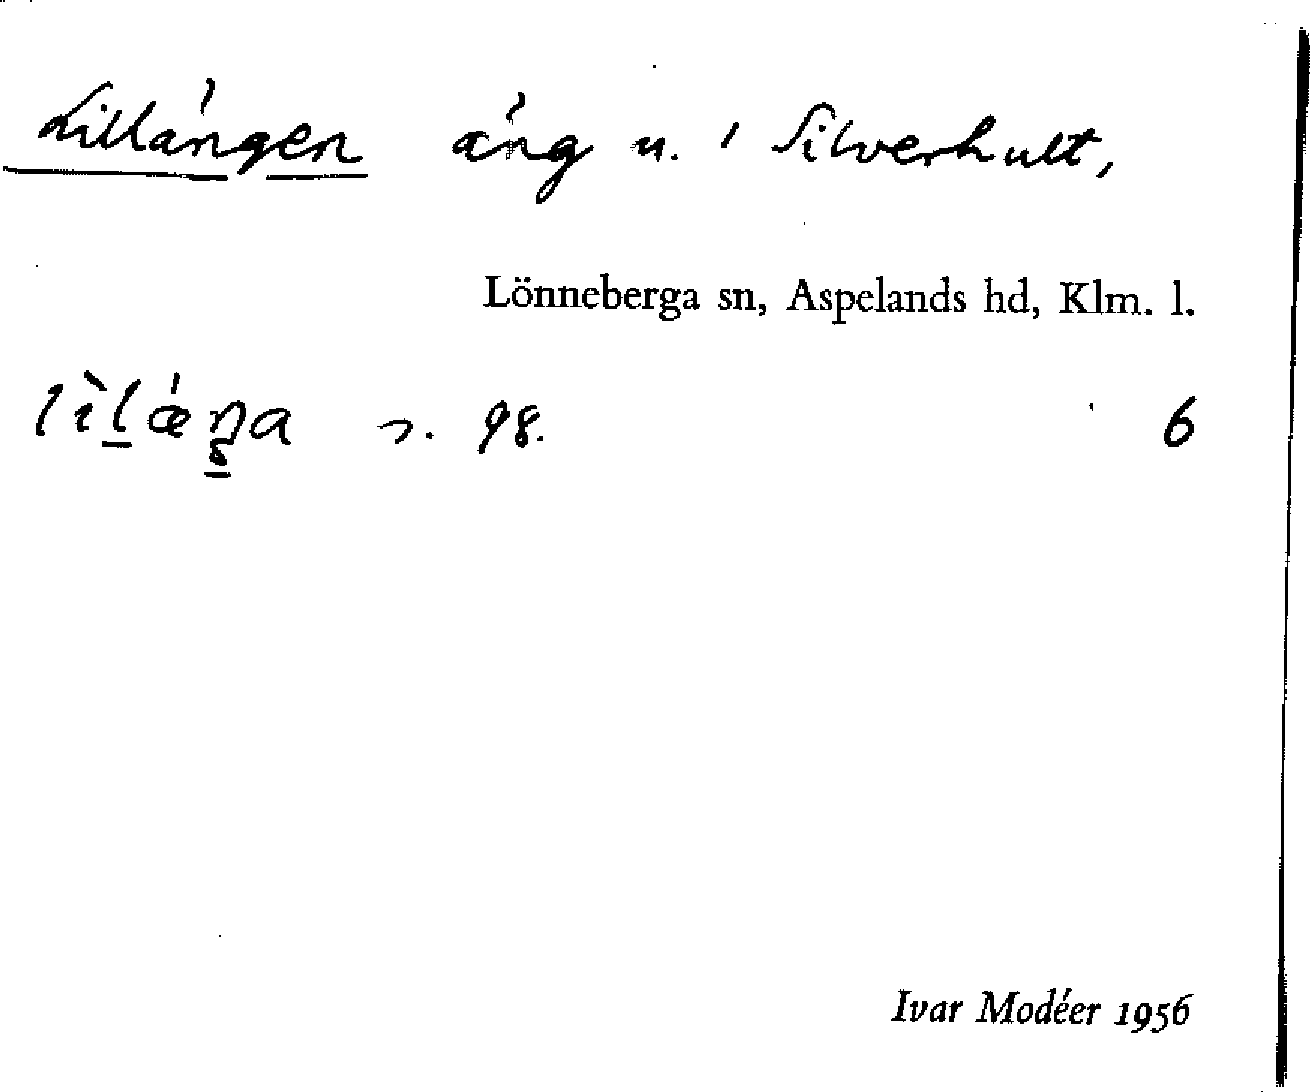 Lillängen äng n. i Silverhult,
Lönneberga sn, Aspelands hd, Klm. l.
s. 98. 6
Ivar Modéer 1956